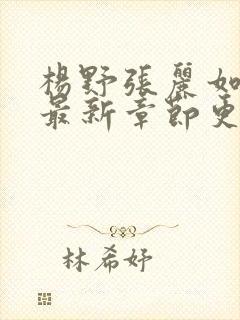 楊野張麗如
最新章節更
林希妤